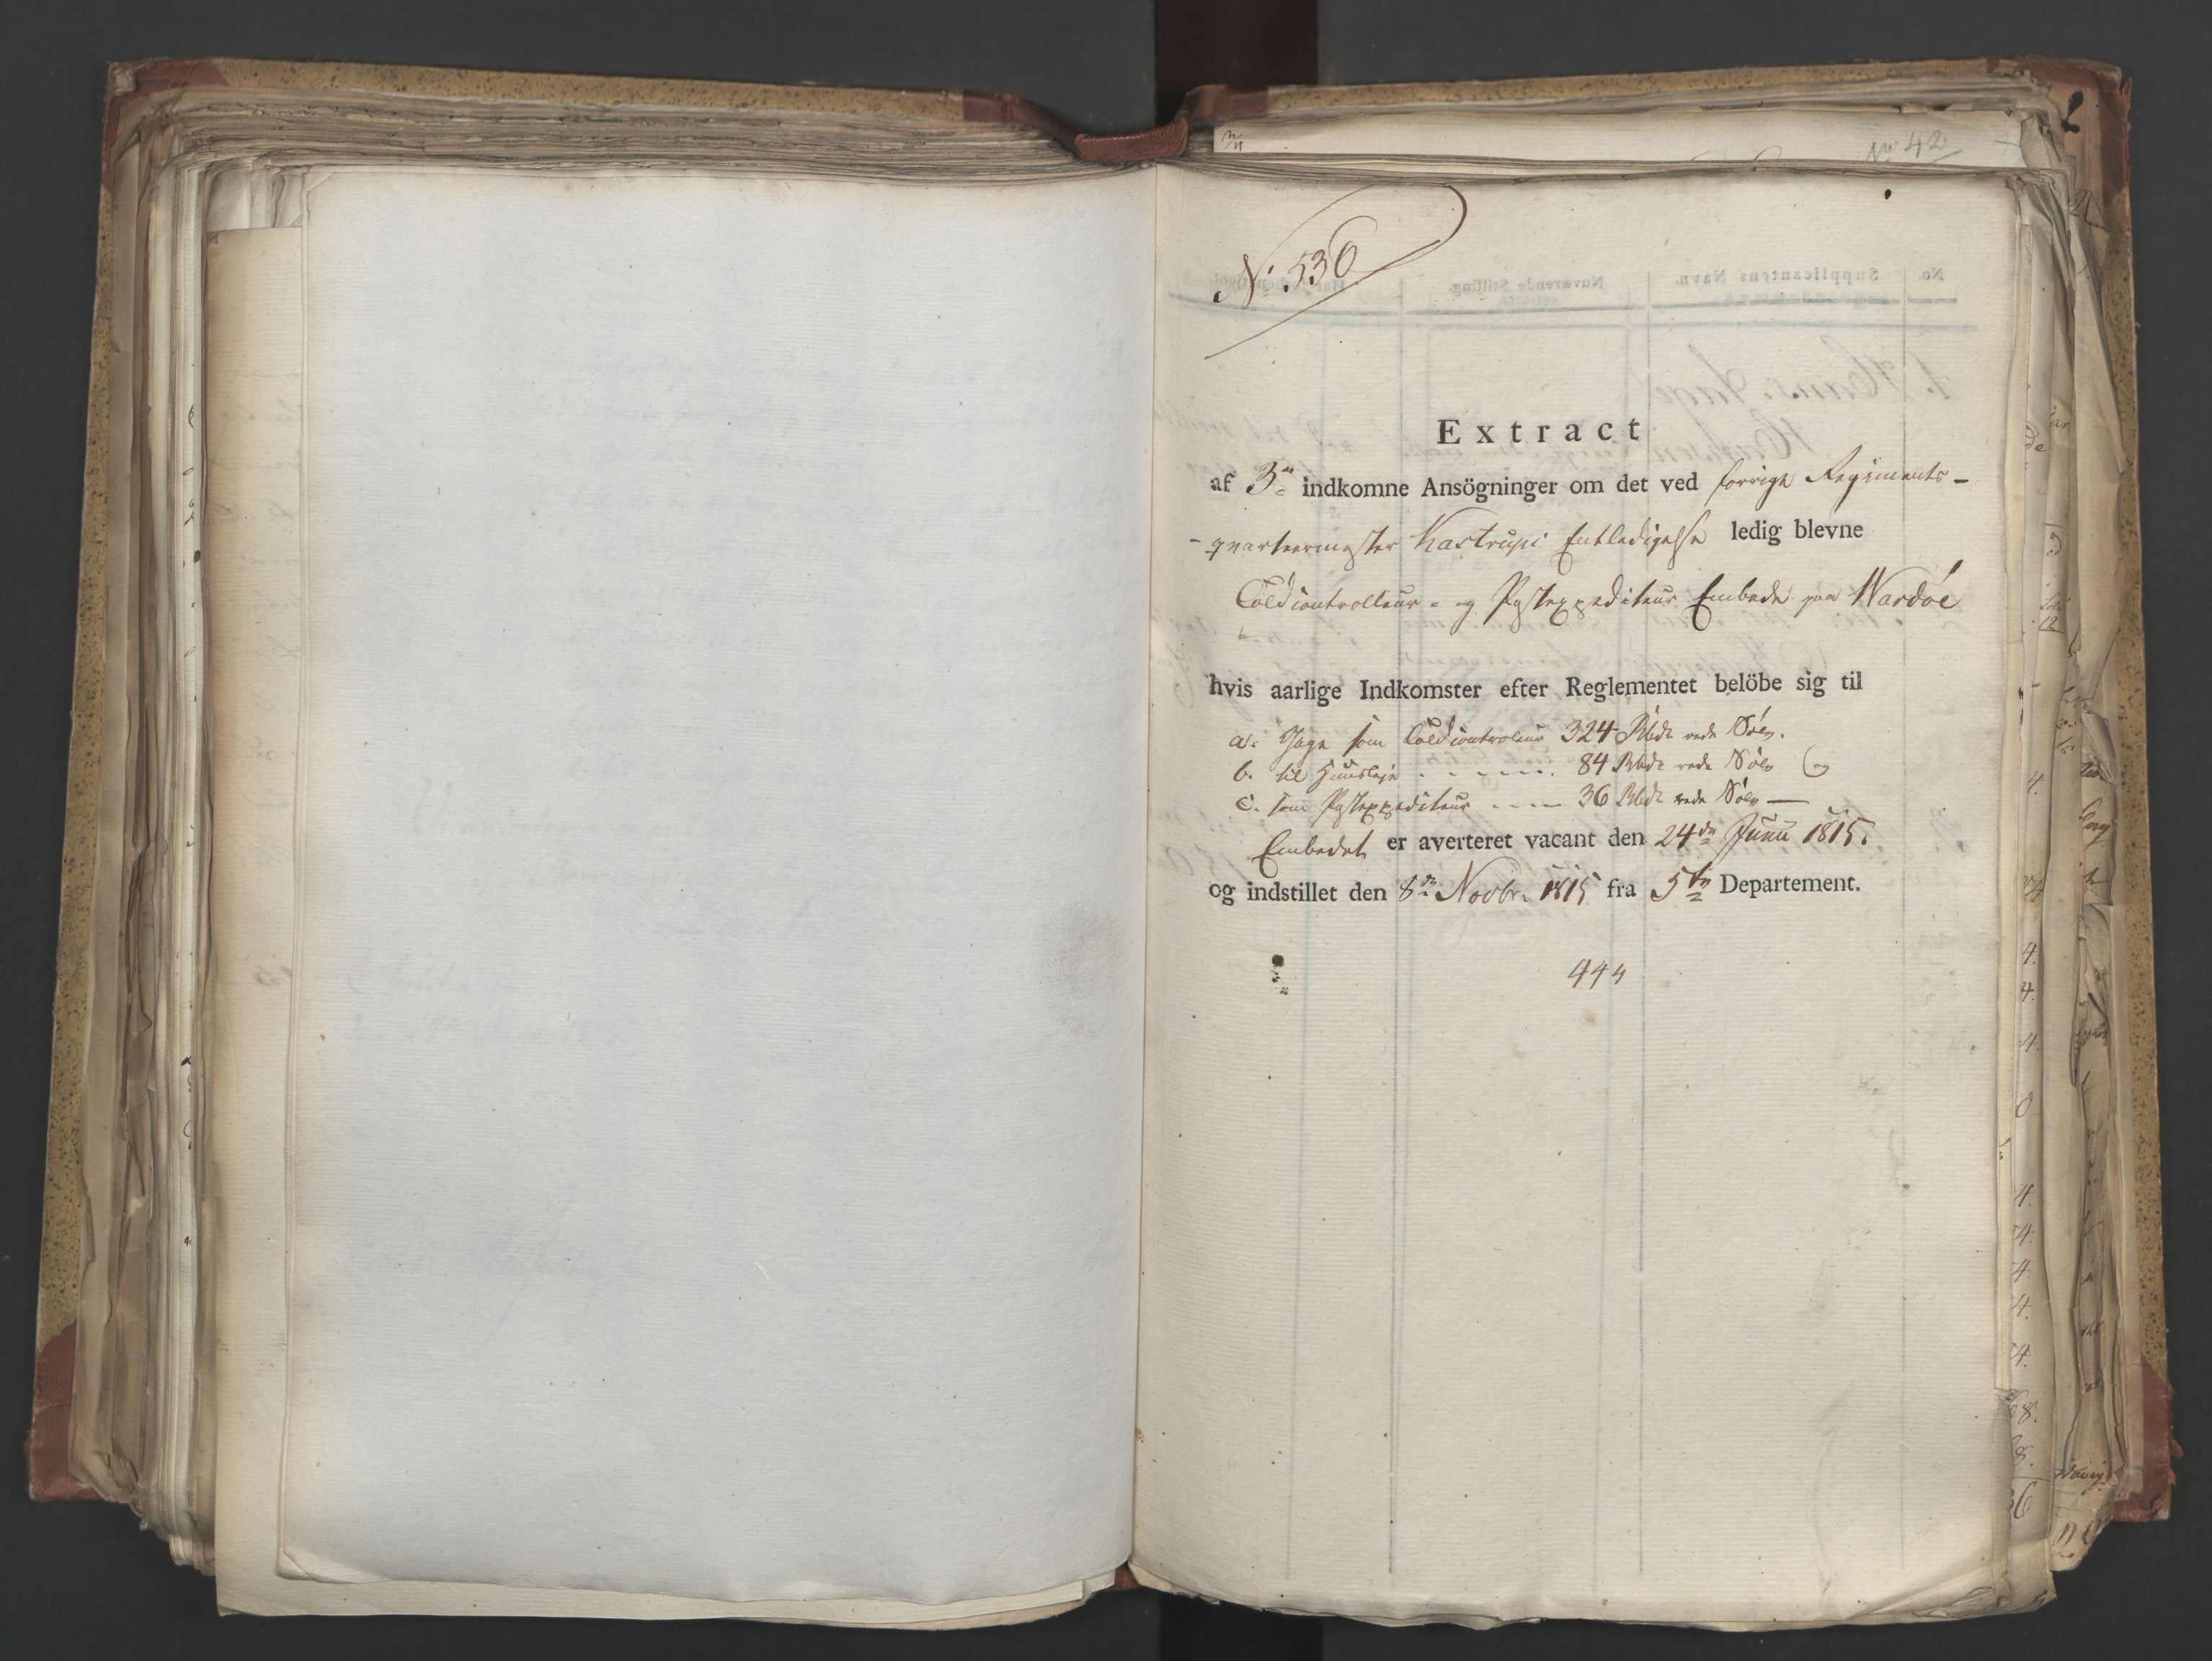 No 42
No 536
Extract
af 3de indkomne Ansögninger om det ved forrige Regiments-
-qvarteermester Kastrups Entledigelse ledig blevne
Toldcontrolleur- og Postexpediteur Embede paa Wardöe
hvis aarlige Indkomster efter Reglementet belöbe sig til
a: Gage som Toldcontroleur 324 Rbdr rede Sölv.
b. til Huusleje . . . . . . 84 Rbdr rede Sölv (og
c. som Postexpediteur . . . . 36 Rbdr rede Sölv —
Embedet er averteret vacant den 24de Junii 1815.
og indstillet den 8de Novbr. 1815 fra 5te Departement.
444